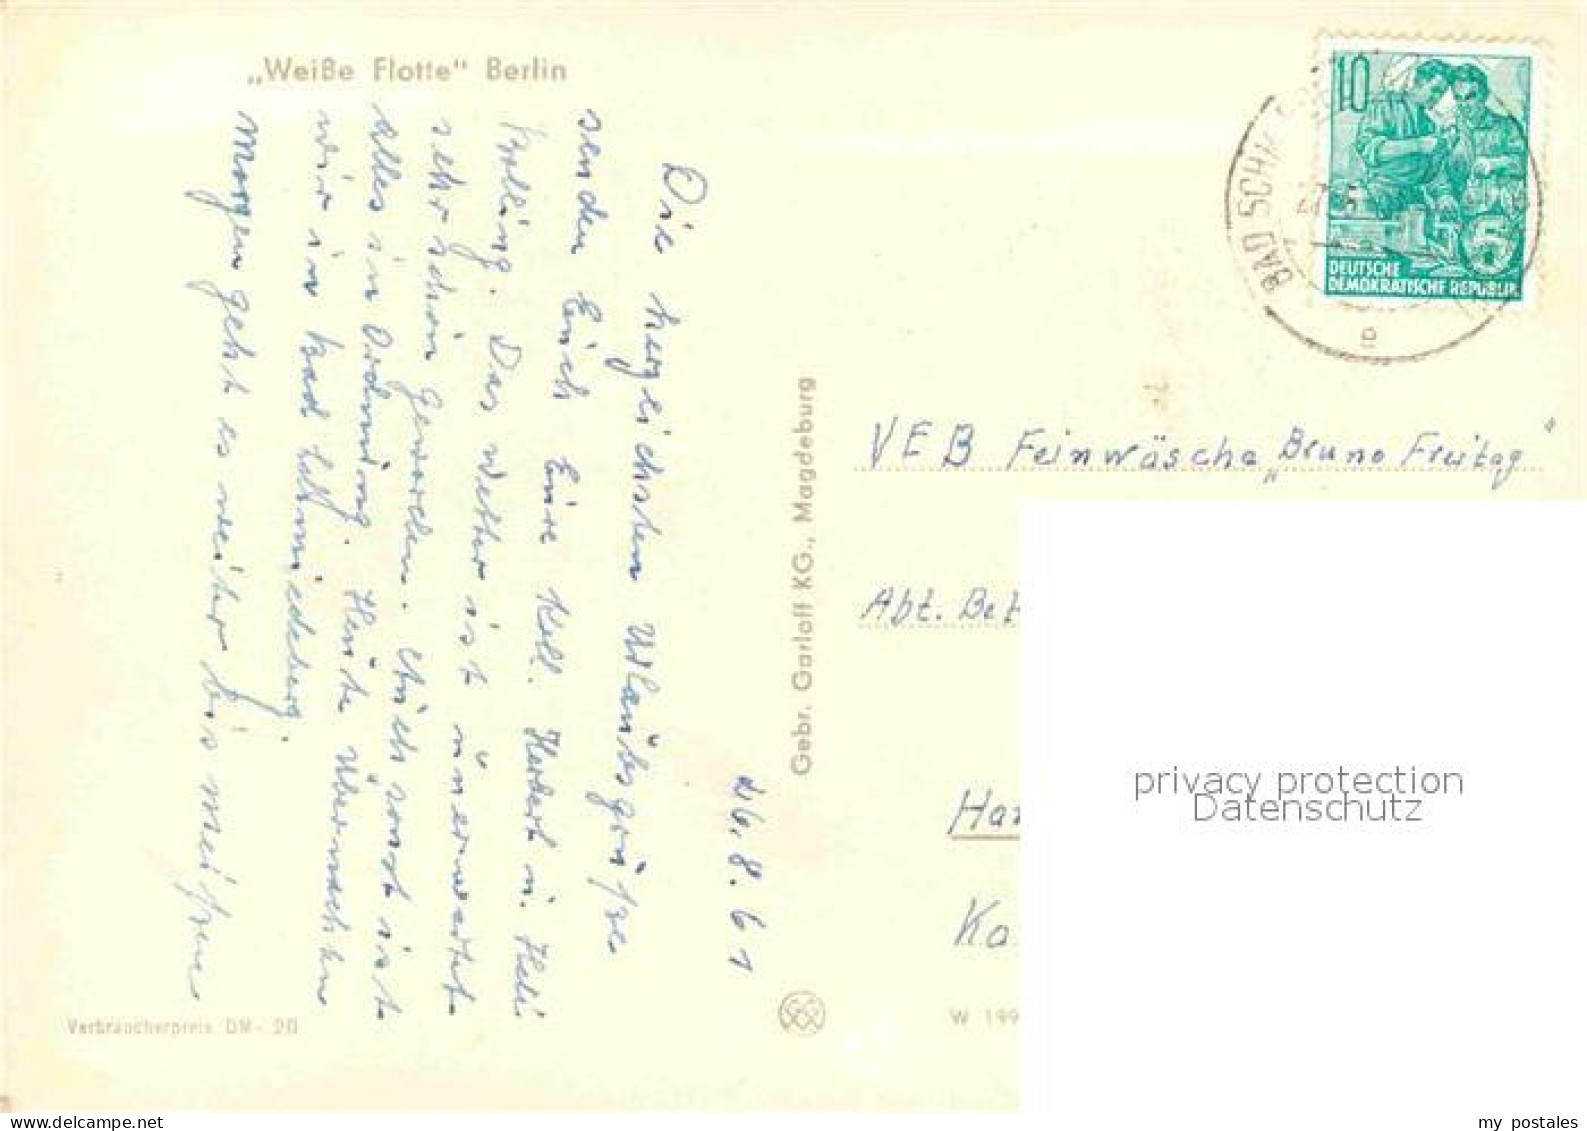 „Weiße Flotte" Berlin
26.8.61
Die herzlichsten Urlaubsgrüße
senden Euch Eure Koll. Herbert u. Heli
Bolling. Das Wetter ist unerwartet
sehr schön geworden. Auch sonst ist
alles in Ordnung. Heute übernachten
wir in Bad Schmiedeberg.
Morgen geht es weiter bis
Verbraucherpreis DM -.20
Gebr. Garloff KG., Magdeburg
10
5
DEUTSCHE
DEMOKRATISCHE REPUBLIK
BAD SCHM
e
VEB Feinwäsche „Bruno Freitag"
Abt. Bet
Har
Ka
W 199
privacy protection
Datenschutz
my postales